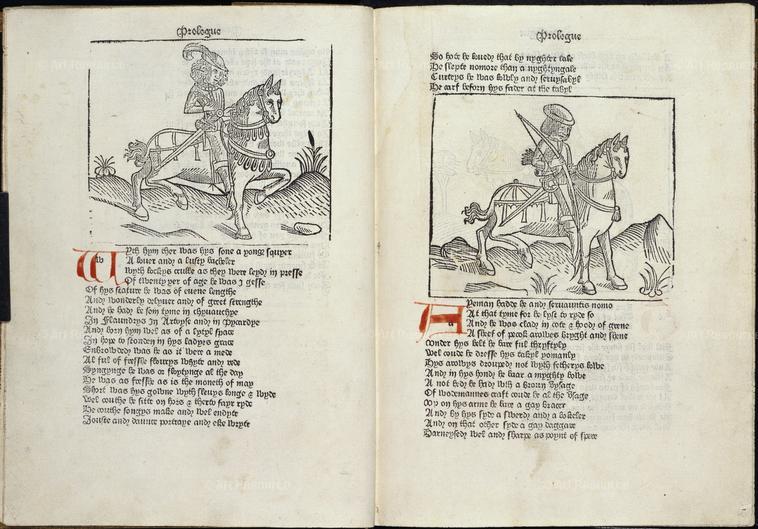 Prologue
Wyth hym ther was hys sone a yong squyer
A louer and a lusty bacheler
Wyth lockys crulle as they were leyd in presse
Of twenty yer of age he was I gesse
Of hys stature he was of euene lengthe
And wonderly delyuer and of greet strengthe
And he had be som tyme in chyuauchye
In Flaundrys In Artoys and in Pycardye
And born hym wel as of a lytyl space
In hope to stonden in hys ladyes grace
Enbrowded was he as it were a mede
Al ful of fresshe flourys whyte and rede
Syngynge he was or floytynge al the day
He was as fresshe as is the moneth of may
Short was hys gowne wyth sleuys longe & wyde
Wel couthe he sitte on hors & therto fayr ryde
He couthe songys make and wel endyte
Iouste and daunce portraye and eke wryte
Prologue
So hote he louede that by nyghter tale
He slepte nomore than a nyghtyngale
Curteys he was lowly and seruysabyl
He carf beforn hys fader at the tabyl
A Yeman hadde he and seruauntis nomo
At that tyme for he lyst to ryde so
And he was clad in cote & hood of grene
A sheef of pecok arowes bryght and shene
Vnder hys belt he bare ful thryftyly
Wel coude he dresse hys takyl yomanly
Hys arowys drouped not wyth fetherys lowe
And in hys hond he bare a myghty bowe
A not hed he had with a broun vysage
Of wodemannes craft coude he al the vsage
Vpon hys arme he bare a gay bracer
And by hys syde a swerd and a bokeler
And on that other syde a gay daggare
Harneysed wel and sharpe as poynt of spere